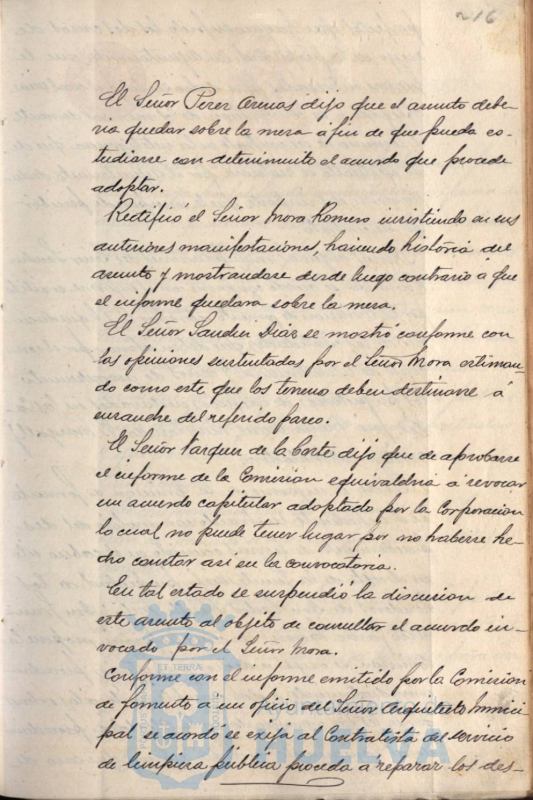 216
El Señor Perez Arenas dijo que el asunto debe-
ria quedar sobre la mesa á fin de que pueda es-
tudiarse con detenimiento el acuerdo que procede
adoptar.
Rectificó el Señor Mora Romero insistiendo en sus
anteriores manifestaciones, haciendo historia del
asunto y mostrandose desde luego contrario á que
el informe quedara sobre la mesa.
El Señor Sanchez Diaz se mostró conforme con
las opiniones sustentadas por el Señor Mora estiman-
do como este que los terrenos deben destinarse á
ensanche del referido paseo.
El Señor Vazquez de la Corte dijo que de aprobarse
el informe de la Comision equivaldria á revocar
un acuerdo capitular adoptado por la Corporacion
lo cual no puede tener lugar por no haberse he-
cho constar asi en la convocatoria.
En tal estado se suspendió la discusion de
este asunto al objeto de consultar el acuerdo in-
vocado por el Señor Mora.
Conforme con el informe emitido por la Comision
de fomento a un oficio del Señor Arquitecto Munici
pal se acordó se exija al Contratista del servicio
de limpieza pública proceda a reparar los des-
ET TERRA
HUELVA